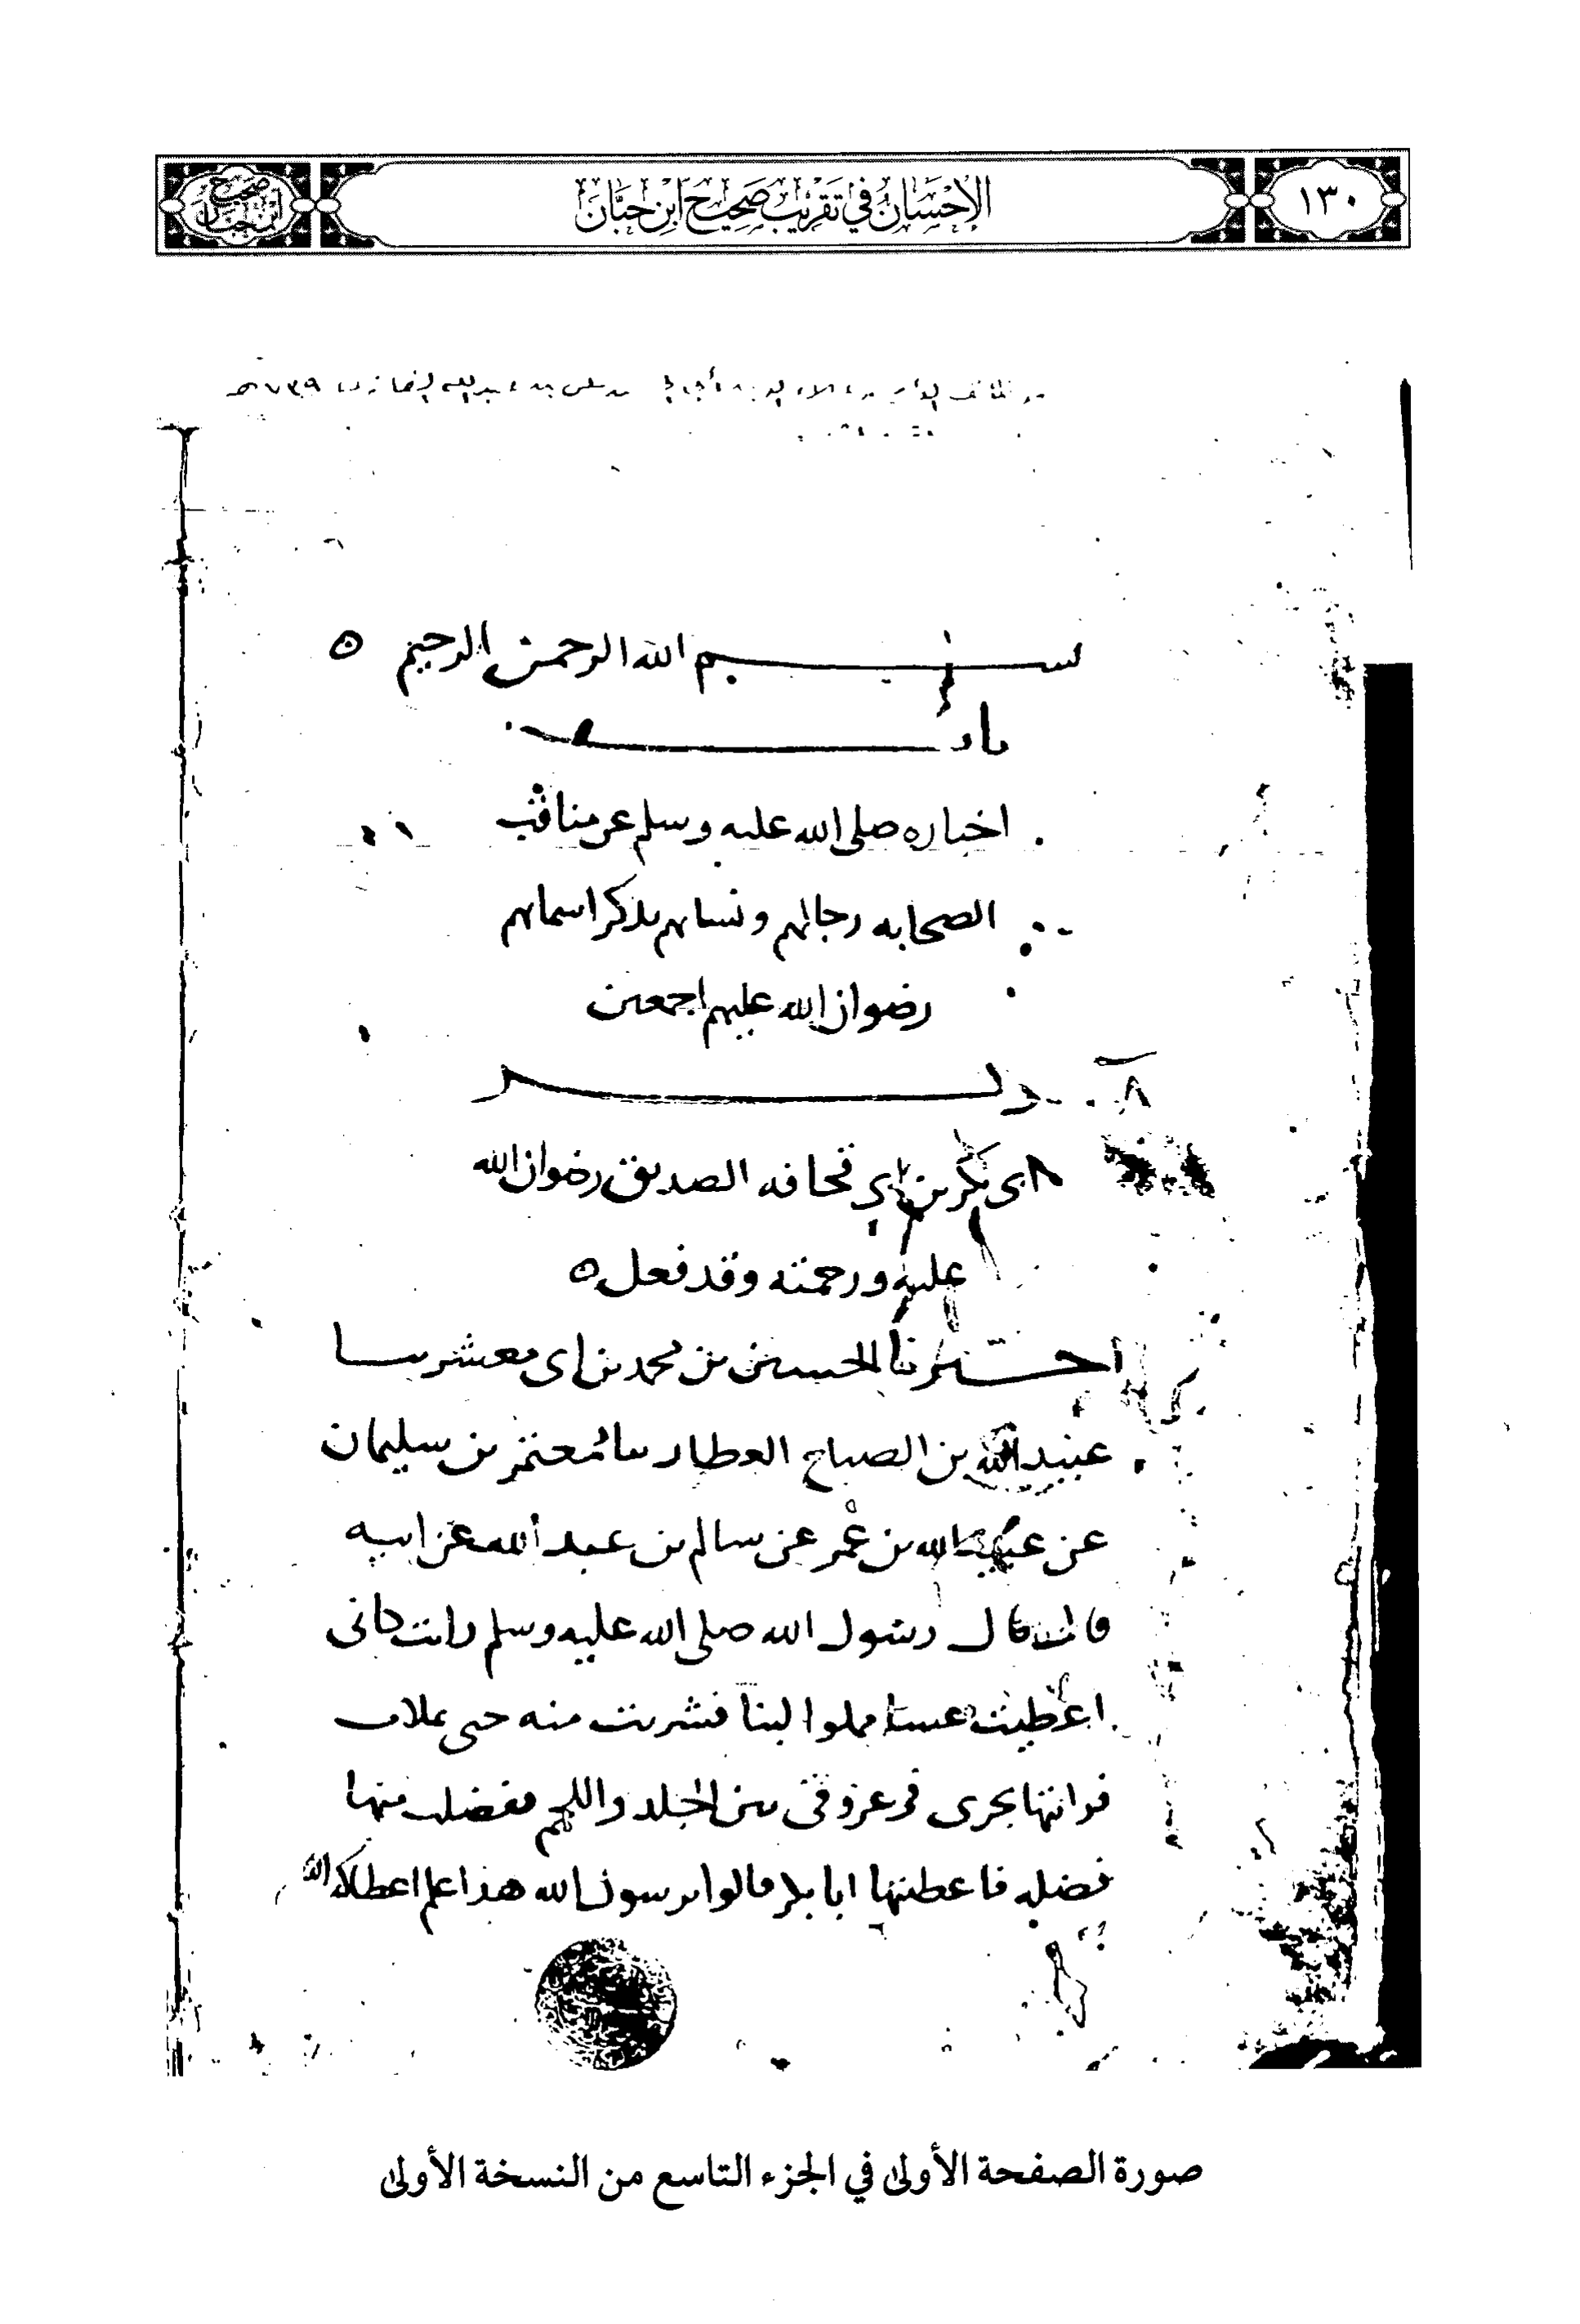 ١٣٠
الإحسان في تقريب صحيح ابن حبان
صحيح ابن حبان
علي بن عبد الله ٧٣٩هـ
بسم الله الرحمن الرحيم ٥
اخباره صلى الله عليه وسلم عن مناقب
الصحابه رجالهم ونسايهم بذكر اسمايهم
رضوان الله عليهم اجمعين
ذكر
ابي بكر بن ابي قحافه الصديق رضوان الله
عليه ورحمته وقد فعل ٥
اخبرنا الحسين بن محمد بن ابي معشر ثنا
عبيد الله بن الصباح العطار ثنا معتمر بن سليمان
عن عبيد الله بن عمر عن سالم بن عبد الله عن ابيه
قال قال رسول الله صلى الله عليه وسلم رايت كاني
اعطيت عسا مملوا لبنا فشربت منه حتى تملات
فرايتها تجري في عروقي بين الجلد واللحم ففضلت منها
فضله فاعطيتها ابا بكر قالوا يرسول الله هذا علم اعطاكه الله
صورة الصفحة الأولى في الجزء التاسع من النسخة الأولى